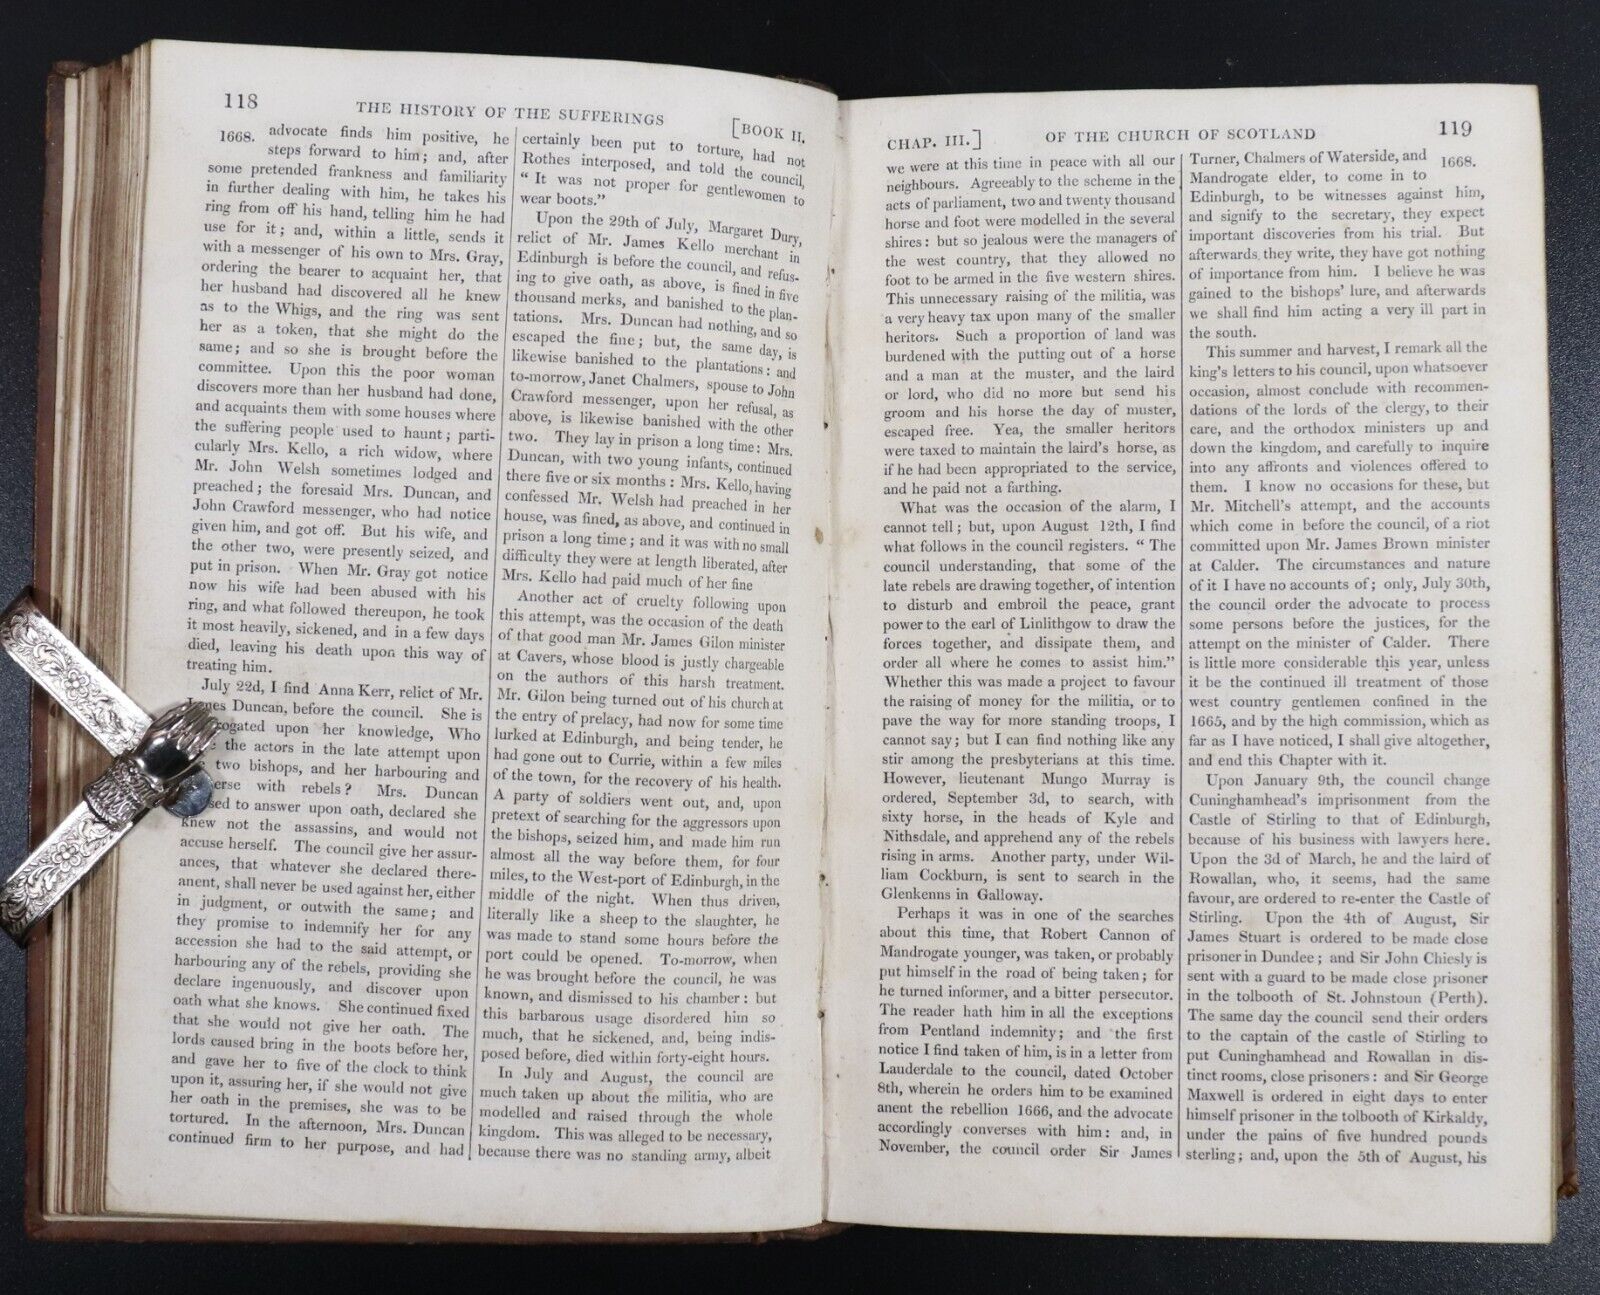 118
THE HISTORY OF THE SUFFERINGS
[BOOK II.
1668.
advocate finds him positive, he
steps forward to him; and, after
some pretended frankness and familiarity
in further dealing with him, he takes his
ring from off his hand, telling him he had
use for it; and, within a little, sends it
with a messenger of his own to Mrs. Gray,
ordering the bearer to acquaint her, that
her husband had discovered all he knew
as to the Whigs, and the ring was sent
her as a token, that she might do the
same; and so she is brought before the
committee. Upon this the poor woman
discovers more than her husband had done,
and acquaints them with some houses where
the suffering people used to haunt; parti-
cularly Mrs. Kello, a rich widow, where
Mr. John Welsh sometimes lodged and
preached; the foresaid Mrs. Duncan, and
John Crawford messenger, who had notice
given him, and got off. But his wife, and
the other two, were presently seized, and
put in prison. When Mr. Gray got notice
now his wife had been abused with his
ring, and what followed thereupon, he took
it most heavily, sickened, and in a few days
died, leaving his death upon this way of
treating him.
July 22d, I find Anna Kerr, relict of Mr.
James Duncan, before the council. She is
rogated upon her knowledge, Who
the actors in the late attempt upon
two bishops, and her harbouring and
erse with rebels? Mrs. Duncan
sed to answer upon oath, declared she
knew not the assassins, and would not
accuse herself. The council give her assur-
ances, that whatever she declared there-
anent, shall never be used against her, either
in judgment, or outwith the same; and
they promise to indemnify her for any
accession she had to the said attempt, or
harbouring any of the rebels, providing she
declare ingenuously, and discover upon
oath what she knows. She continued fixed
that she would not give her oath. The
lords caused bring in the boots before her,
and gave her to five of the clock to think
upon it, assuring her, if she would not give
her oath in the premises, she was to be
tortured. In the afternoon, Mrs. Duncan
continued firm to her purpose, and had
certainly been put to torture, had not
Rothes interposed, and told the council,
“ It was not proper for gentlewomen to
wear boots.”
Upon the 29th of July, Margaret Dury,
relict of Mr. James Kello merchant in
Edinburgh is before the council, and refus-
ing to give oath, as above, is fined in five
thousand merks, and banished to the plan-
tations. Mrs. Duncan had nothing, and so
escaped the fine; but, the same day, is
likewise banished to the plantations: and
to-morrow, Janet Chalmers, spouse to John
Crawford messenger, upon her refusal, as
above, is likewise banished with the other
two. They lay in prison a long time: Mrs.
Duncan, with two young infants, continued
there five or six months: Mrs. Kello, having
confessed Mr. Welsh had preached in her
house, was fined, as above, and continued in
prison a long time; and it was with no small
difficulty they were at length liberated, after
Mrs. Kello had paid much of her fine
Another act of cruelty following upon
this attempt, was the occasion of the death
of that good man Mr. James Gilon minister
at Cavers, whose blood is justly chargeable
on the authors of this harsh treatment.
Mr. Gilon being turned out of his church at
the entry of prelacy, had now for some time
lurked at Edinburgh, and being tender, he
had gone out to Currie, within a few miles
of the town, for the recovery of his health.
A party of soldiers went out, and, upon
pretext of searching for the aggressors upon
the bishops, seized him, and made him run
almost all the way before them, for four
miles, to the West-port of Edinburgh, in the
middle of the night. When thus driven,
literally like a sheep to the slaughter, he
was made to stand some hours before the
port could be opened. To-morrow, when
he was brought before the council, he was
known, and dismissed to his chamber: but
this barbarous usage disordered him so
much, that he sickened, and, being indis-
posed before, died within forty-eight hours.
In July and August, the council are
much taken up about the militia, who are
modelled and raised through the whole
kingdom. This was alleged to be necessary,
because there was no standing army, albeit
CHAP. III.]
OF THE CHURCH OF SCOTLAND
119
we were at this time in peace with all our
neighbours. Agreeably to the scheme in the
acts of parliament, two and twenty thousand
horse and foot were modelled in the several
shires: but so jealous were the managers of
the west country, that they allowed no
foot to be armed in the five western shires.
This unnecessary raising of the militia, was
a very heavy tax upon many of the smaller
heritors. Such a proportion of land was
burdened with the putting out of a horse
and a man at the muster, and the laird
or lord, who did no more but send his
groom and his horse the day of muster,
escaped free. Yea, the smaller heritors
were taxed to maintain the laird's horse, as
if he had been appropriated to the service,
and he paid not a farthing.
What was the occasion of the alarm, I
cannot tell; but, upon August 12th, I find
what follows in the council registers. “ The
council understanding, that some of the
late rebels are drawing together, of intention
to disturb and embroil the peace, grant
power to the earl of Linlithgow to draw the
forces together, and dissipate them, and
order all where he comes to assist him.”
Whether this was made a project to favour
the raising of money for the militia, or to
pave the way for more standing troops, I
cannot say; but I can find nothing like any
stir among the presbyterians at this time.
However, lieutenant Mungo Murray is
ordered, September 3d, to search, with
sixty horse, in the heads of Kyle and
Nithsdale, and apprehend any of the rebels
rising in arms. Another party, under Wil-
liam Cockburn, is sent to search in the
Glenkenns in Galloway.
Perhaps it was in one of the searches
about this time, that Robert Cannon of
Mandrogate younger, was taken, or probably
put himself in the road of being taken; for
he turned informer, and a bitter persecutor.
The reader hath him in all the exceptions
from Pentland indemnity; and the first
notice I find taken of him, is in a letter from
Lauderdale to the council, dated October
8th, wherein he orders him to be examined
anent the rebellion 1666, and the advocate
accordingly converses with him: and, in
November, the council order Sir James
Turner, Chalmers of Waterside, and
1668.
Mandrogate elder, to come in to
Edinburgh, to be witnesses against him,
and signify to the secretary, they expect
important discoveries from his trial. But
afterwards they write, they have got nothing
of importance from him. I believe he was
gained to the bishops' lure, and afterwards
we shall find him acting a very ill part in
the south.
This summer and harvest, I remark all the
king's letters to his council, upon whatsoever
occasion, almost conclude with recommen-
dations of the lords of the clergy, to their
care, and the orthodox ministers up and
down the kingdom, and carefully to inquire
into any affronts and violences offered to
them. I know no occasions for these, but
Mr. Mitchell's attempt, and the accounts
which come in before the council, of a riot
committed upon Mr. James Brown minister
at Calder. The circumstances and nature
of it I have no accounts of; only, July 30th,
the council order the advocate to process
some persons before the justices, for the
attempt on the minister of Calder. There
is little more considerable this year, unless
it be the continued ill treatment of those
west country gentlemen confined in the
1665, and by the high commission, which as
far as I have noticed, I shall give altogether,
and end this Chapter with it.
Upon January 9th, the council change
Cuninghamhead's imprisonment from the
Castle of Stirling to that of Edinburgh,
because of his business with lawyers here.
Upon the 3d of March, he and the laird of
Rowallan, who, it seems, had the same
favour, are ordered to re-enter the Castle of
Stirling. Upon the 4th of August, Sir
James Stuart is ordered to be made close
prisoner in Dundee; and Sir John Chiesly is
sent with a guard to be made close prisoner
in the tolbooth of St. Johnstoun (Perth).
The same day the council send their orders
to the captain of the castle of Stirling to
put Cuninghamhead and Rowallan in dis-
tinct rooms, close prisoners: and Sir George
Maxwell is ordered in eight days to enter
himself prisoner in the tolbooth of Kirkaldy,
under the pains of five hundred pounds
sterling; and, upon the 5th of August, his